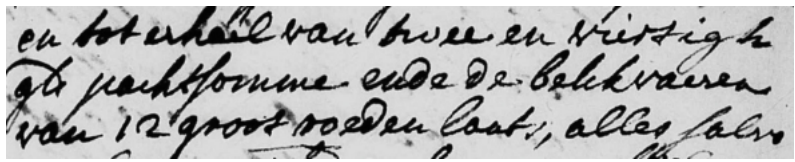 en tot erheil van twee en viertigh
gls pachtsomme ende de belckvaeren
van 12 groot roeden lants, alles salvo